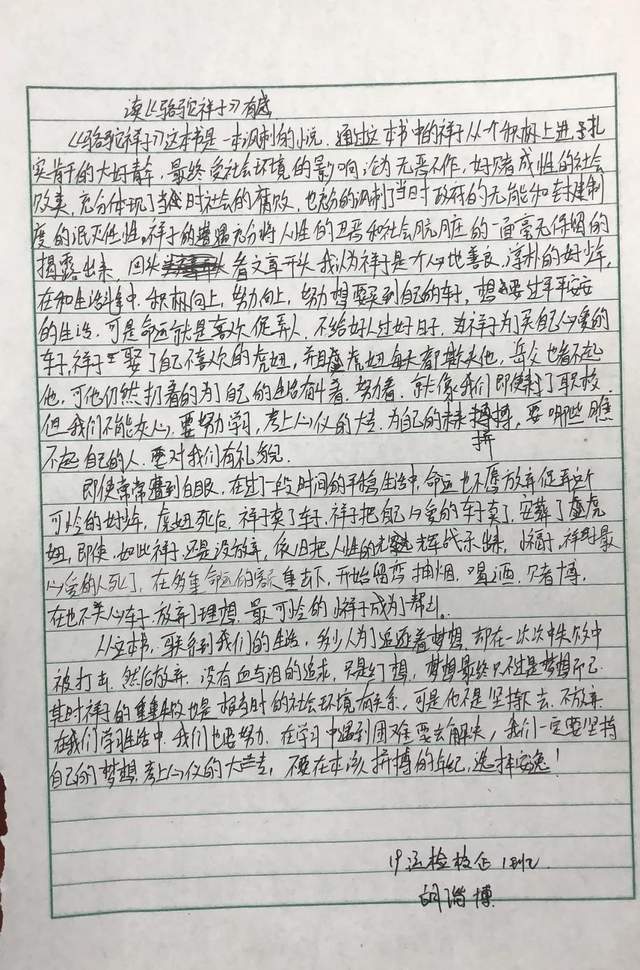 读《骆驼祥子》有感
《骆驼祥子》这本书是一本讽刺的小说。通过这本书中的祥子从一个积极上进、扎
实肯干的大好青年,最终受社会环境的影响沦为无恶不作,好赌成性的社会
败类,充分体现了当时社会的腐败,也充分的讽刺了当时政府的无能和封建制
度的泯灭人性,祥子的遭遇充分将人性的丑恶和社会肮脏的一面毫无保留的
揭露出来。回头看文章开头我认为祥子是个心地善良,淳朴的好少年,
在和生活斗争中,积极向上,努力向上,努力想要买到自己的车子,想要过平平安安
的生活,可是命运就是喜欢捉弄人,不给好人过好日子。祥子为了买自己心爱的
车子,祥子娶了自己不喜欢的虎妞,并且虎妞每天都欺负他,岳父也看不起
他,可他仍然执着的为了自己的生活奋斗着,努力着,就像我们即使到了职校,
但我们不能灰心,要努力学习,考上心仪的大专,为自己的未来拼搏,要哪些瞧
不起自己的人,要对我们有礼貌。
即使常常遭到白眼,在过了一段时间的平稳生活中,命运也不愿放弃捉弄这个
可怜的好少年,虎妞死后,祥子卖了车子,祥子把自己心爱的车子卖了,安葬了虎
妞,即使,如此祥子还是没放弃,依旧把人性的光辉战示出来,小福子,祥子最
心爱的人死了,在多重命运的重击下,开始留恋抽烟,喝酒,赌博,
在也不关心车子,放弃了理想,最可怜的小样子成为了帮凶。
从这本书,联系到我们的生活,多少人为了追逐着梦想,却在一次次中失败中
被打击,然后放弃,没有血与泪的追求,只是幻想,梦想最终只不过是梦想而已
其时祥子的失败也是根当时的社会环境有关系,可是他不是坚持下去,不放弃
在我们学习生活中,我们也要努力,在学习中遇到困难要去解决,我们一定要坚持
自己的梦想,考上心仪的大专,不要在本该拼搏的年纪,选择安逸!
19